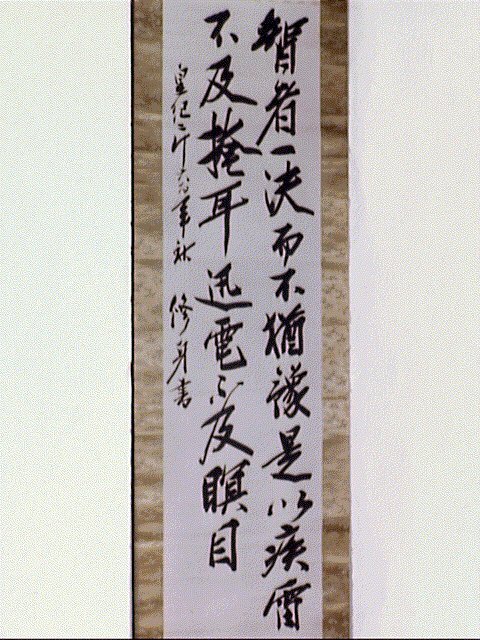 智者一決而不猶豫是以疾雷
不及掩耳迅電不及瞑目
皇紀二千六百年秋 修身書